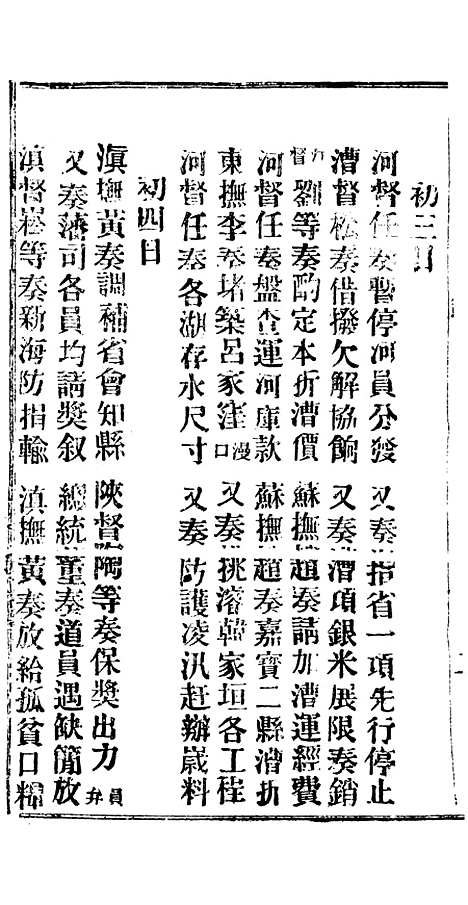 初三日
河督任奏暫停河員分發　又奏指省一項先行停止
漕督松奏借撥欠解協餉　又奏漕項銀米展限奏銷
督劉等奏酌定本折漕價　蘇撫趙奏請加漕運經費
河督任奏盤查運河庫款　蘇撫趙奏嘉寶二縣漕折
東撫李奏堵築呂家窪漫口　又奏挑濬韓家垣各工程
河督任奏各湖存水尺寸　又奏防護凌汛赶辦歲料
初四日
滇撫黃奏調補省會知縣　陝督陶等奏保獎出力員弁
又奏藩司各員均請獎叙　總統董奏道員遇缺簡放
滇督崧等奏新海防捐輸　滇撫黃奏放給孤貧口糧